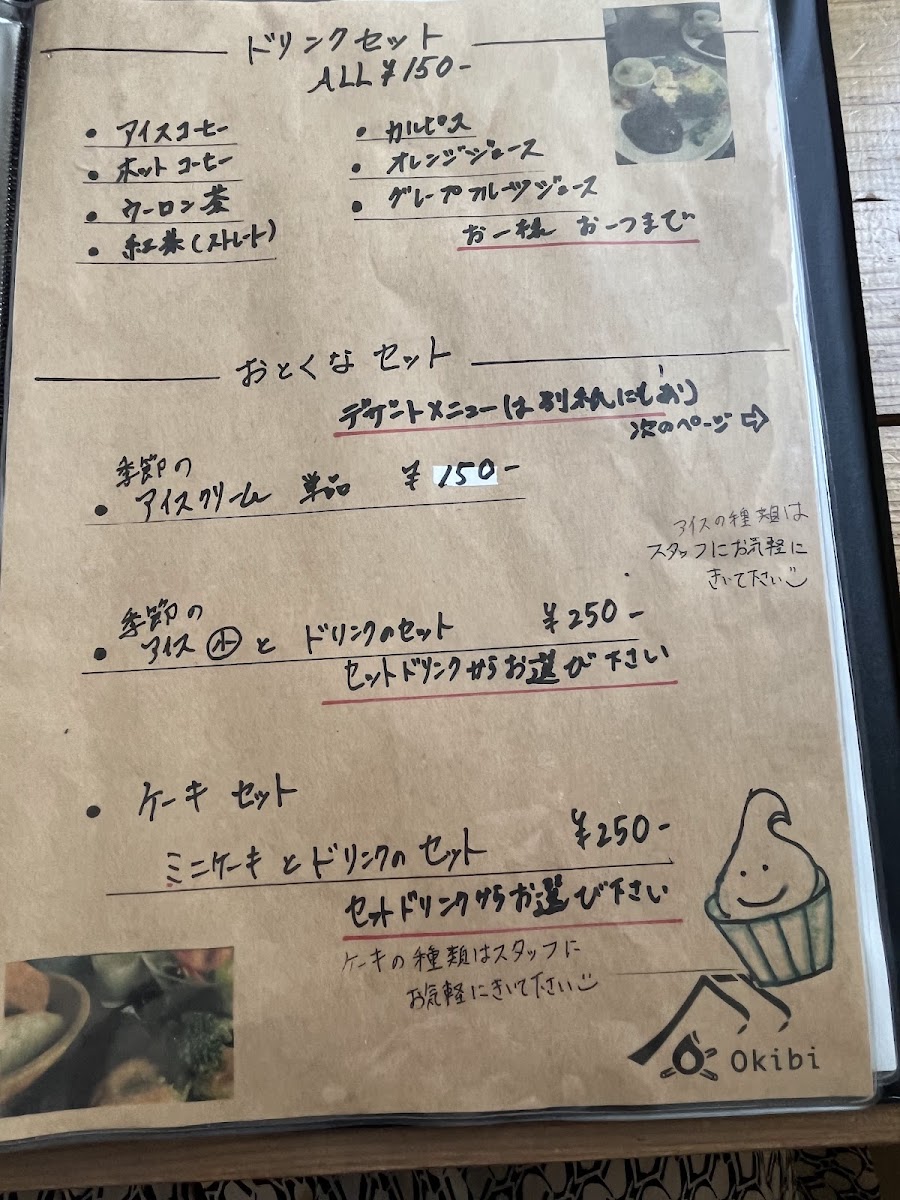 ドリンクセット
ALL ¥150-
・アイスコーヒー
・ホットコーヒー
・ウーロン茶
・紅茶(ストレート)
・カルピス
・オレンジジュース
・グレープフルーツジュース
お一様 お一つまで
おとくなセット
デザートメニューは別紙にもあり
次のページ⇨
季節の
・アイスクリーム 単品 ¥150-
アイスの種類は
スタッフにお気軽に
きいて下さい
季節の
・アイス小とドリンクのセット ¥250-
セットドリンクからお選び下さい
・ケーキセット
ミニケーキとドリンクのセット ¥250-
セットドリンクからお選び下さい
ケーキの種類はスタッフに
お気軽にきいて下さい
Okibi